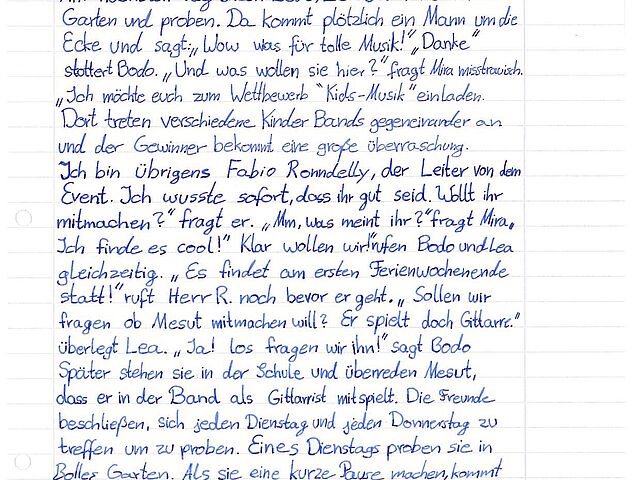 Garten und proben. Da kommt plötzlich ein Mann um die
Ecke und sagt: „Wow was für tolle Musik!" „Danke"
stottert Bodo. „Und was wollen sie hier?" fragt Mira misstrauisch.
„Ich möchte euch zum Wettbewerb "Kids-Musik" einladen.
Dort treten verschiedene Kinder Bands gegeneinander an
und der Gewinner bekommt eine große überraschung.
Ich bin übrigens Fabio Ronndelly, der Leiter von dem
Event. Ich wusste sofort, dass ihr gut seid. Wollt ihr
mitmachen?" fragt er. „Mm, was meint ihr?" fragt Mira„
Ich finde es cool!" Klar wollen wir!" rufen Bodo und Lea
gleichzeitig. „Es findet am ersten Ferienwochenende
statt!" ruft Herr R. noch bevor er geht. „Sollen wir
fragen ob Mesut mitmachen will? Er spielt doch Gittarre."
überlegt Lea. „Ja! los fragen wir ihn!" sagt Bodo
Später stehen sie in der Schule und überreden Mesut,
dass er in der Band als Gittarrist mitspielt. Die Freunde
beschließen, sich jeden Dienstag und jeden Donnerstag zu
treffen um zu proben. Eines Dienstags proben sie in
Bolles Garten. Als sie eine kurze Pause machen, kommt